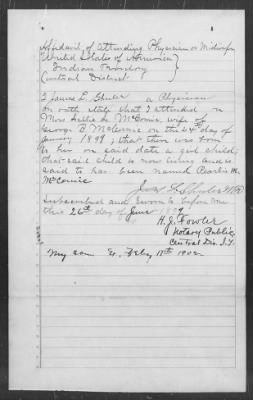 Affidavit of Attending Physician or Midwife
United States of America
Indian Territory
Central District
I James L. a Physician
on oath state that I attended on
Mrs. Lillie L. McComie, wife of
George B. McComie on the 4 day of
January 1899; that there was born
to her on said date a girl child;
that said child is now living and is
said to have been named Pearlie M.
McComie
Subscribed and Sworn to before me
this 26th day of June 1899
H. J. Fowler
Notary Public
Central Dis. I.T.
My com Feby 11th 1902